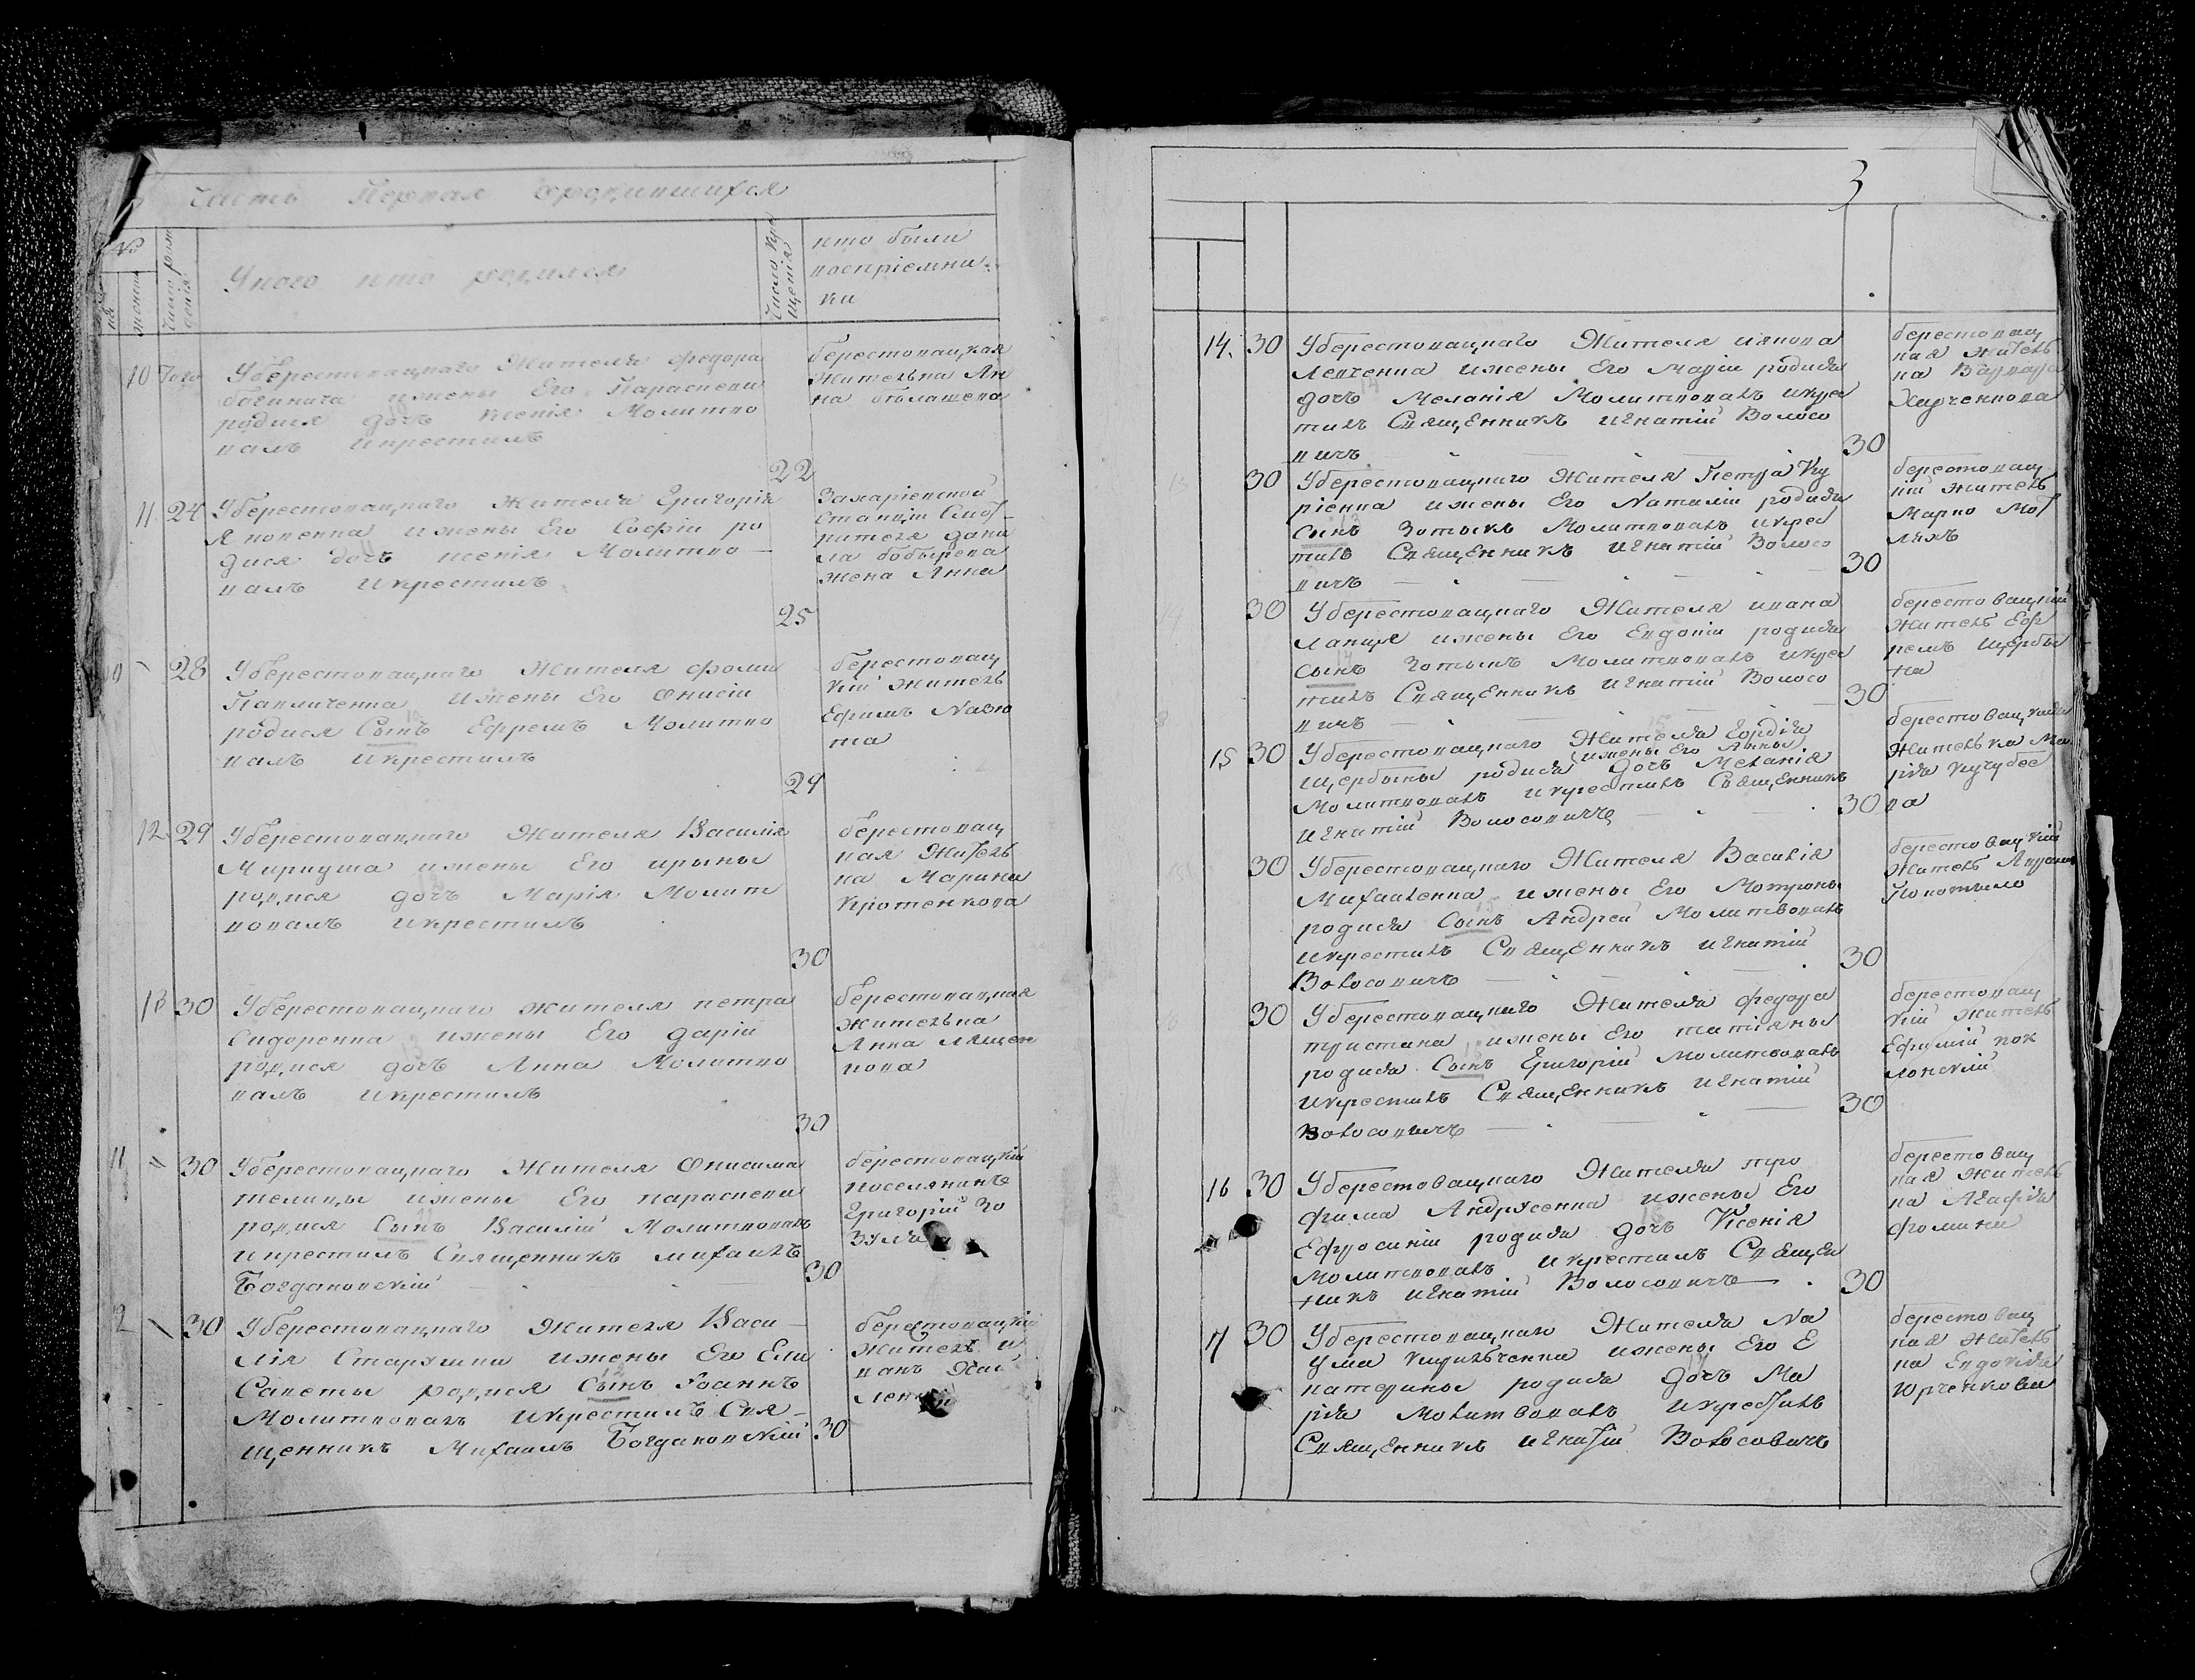 Часть Первая Ородившихся
№
Число рож
дения
женск
Укого кто родился
Число Кре
щенія
кто были
воспріемни-
ки
10 Того Уберестовацкаго Жителя федора
жены Его Параскеви
родися дочь Ксенія Молитво
валъ икрестилъ
22
берестовацкая
Жителька Ан
на бѣлашева
11 24 Уберестовацкаго жителя Григорія
Яковенка ижены Его Софіи ро
дися дочь ксенія Молитво
валъ Икрестилъ
25
Захаріевской
Станціи Смот
рителя дани
ла бобырева
жена Анна
28 Уберестовацкаго Жителя фоми
Павличенка Ижены Его Онисіи
родися Сынъ Ефремъ Молитво
валъ Икрестилъ
29
берестовац
кій житель
Ефимъ
та
12 29 Уберестовацкаго Жителя Василія
ижены Его ирыны
родися дочь Марія Молит
вовалъ Икрестилъ
30
берестовац
кая Жытель
ка Марина
Кротенкова
13 30 Уберестовацкаго жителя петра
Сидоренка ижены Его дарій
родися дочь Анна Молитво
валъ Икрестилъ
30
берестовацкая
жителька
Анна Лящен
кова
11 30 Уберестовацкаго Жителя Онисима
телицы ижены Его параскеви
родися Сынъ Василій Молитвовалъ
икрестилъ Священникъ михаилъ
Богдановскій
30
берестовацкій
поселянинъ
Григорій Зо
12 30 Уберестовацкаго Жителя Васи
лія Старушки ижены Его Ели
Саветы родися Сынъ Іоаннъ
Молитвовалъ Икрестилъ Свя
щенникъ Михаилъ Богдановскій
30
берестовацкій
Житель и
ванъ
3
14. 30 Уберестовацкаго Жителя иякова
Левченка ижены Его Маріи родися
дочь Меланія Молитвовалъ икрес
тилъ Священникъ Игнатій Волосо
вичъ
30
берестовац
кая Житель
ка Варвара
Харченкова
30 Уберестовацкаго Жителя Петра Ку
ріенка ижены Его Наталіи родися
Сынъ Зотыкъ Молитвовалъ икрес
тилъ Священникъ Игнатій Волосо
вичъ
30
берестовац
кій житель
Марко
ляхъ
30 Уберестовацкаго Жителя ивана
Лапця ижены Его Евдокіи родися
Сынъ Зотыкъ Молитвовалъ икрес
тилъ Священникъ Игнатій Волосо
вичъ
30
берестовацкій
житель Еф
ремъ Щербы
на
15 30 Уберестовацкаго Жителя Гордія
ижены Его Анны
Щербыны родися дочь Меланія
Молитвовалъ икрестилъ Священникъ
Игнатій Волосовичъ
30
берестовацкая
Жителька Ма
рія кучубее
ва
30 Уберестовацкаго Жителя Василія
Михаиленка ижены Его Мотроны
родися Сынъ Андрей Молитвовалъ
икрестилъ Священникъ Игнатій
Волосовичъ
30
берестовацкій
Житель
Покотыло
30 Уберестовацкаго Жителя федора
тристана ижены Его татіяны
родися Сынъ Григорій Молитвовалъ
икрестилъ Священникъ Игнатій
Волосовичъ
30
берестовац
кій житель
Ефимій пок
лонскій
16 30 Уберестовацкаго Жителя тро
фима Андрусенка ижены Его
Ефросиніи родися дочь Ксенія
Молитвовалъ икрестилъ Священ
никъ Игнатій Волосовичъ
30
берестовац
кая житель
ка Агафія
фомина
17 30 Уберестовацкаго Жителя На
ума кирильченка ижены Его Е
катерины родися дочь Ма
рія Молитвовалъ икрестилъ
Священникъ Игнатій Волосовичъ
берестовац
кая житель
ка Евдокія
Юрченкова